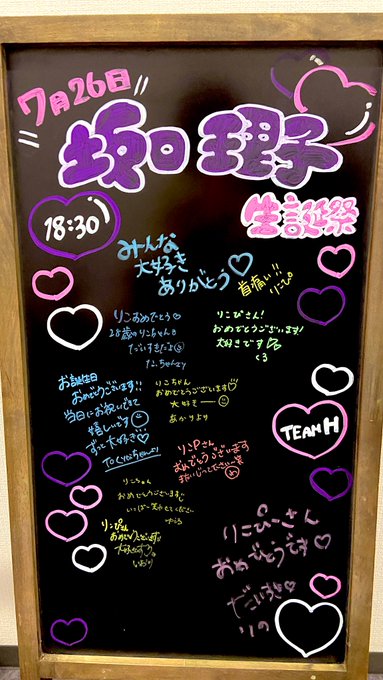 7月26日
坂口理子
生誕祭
18:30
みんな
大好き
ありがとう♡
首痛い!!
りこぴ
りこおめでとう♡
28歳のりこちゃんも
だいすきだよ
りこぴさん!
おめでとうございます!
大好きです
<3
お誕生日
おめでとうございます!!
当日にお祝いできて
嬉しいです
ずっと大好き♡
りこちゃん
おめでとうございます♡
大好きー
あかりより
TEAM H
りこPさん
おめでとうございます
りこちゃん
おめでとうございます
いっぱい笑わせてください
りこぴさん
おめでとうございます!!
大好きです
いおり
りこぴーさん
おめでとうです♡
だいすき♡
りの